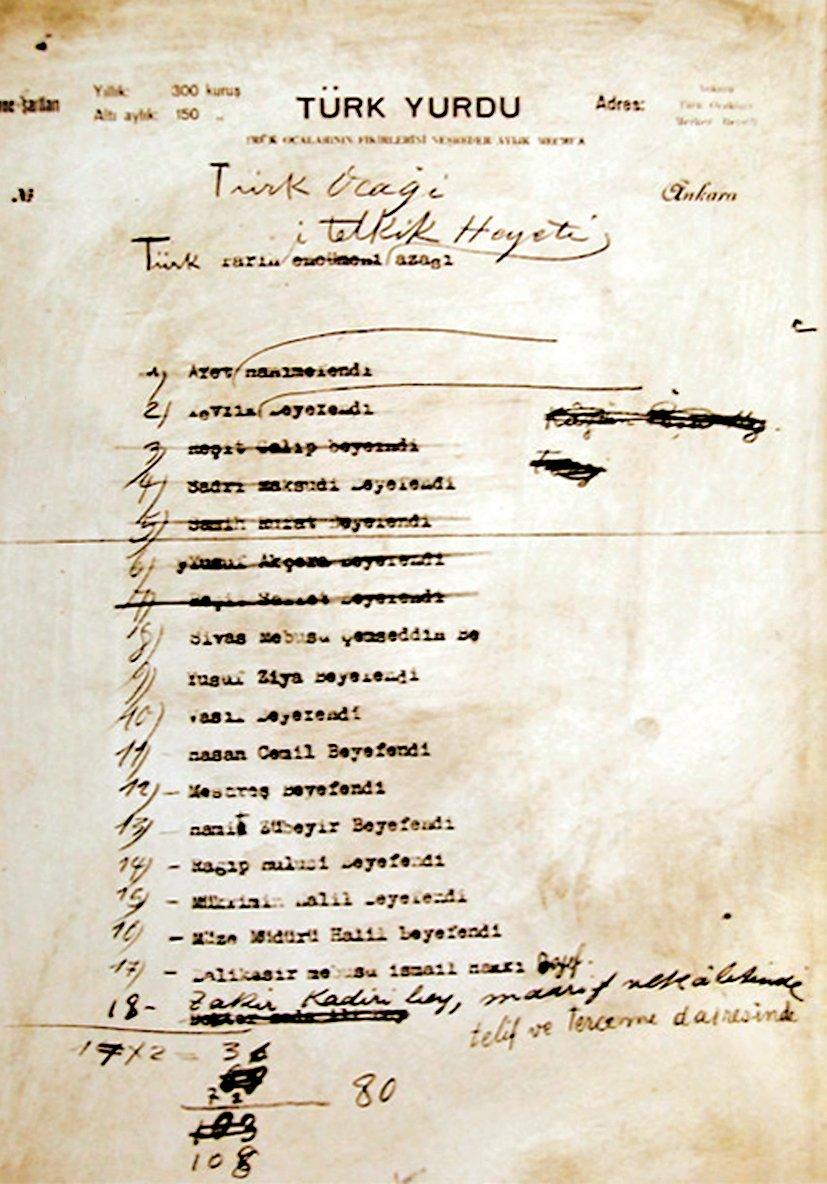 Yıllık: 300 kuruş
Altı aylık: 150 „
TÜRK YURDU
Adres:
Ankara
Türk Ocakları
Merkez Heyeti
TÜRK OCAKLARININ FİKİRLERİNİ NEŞREDER AYLIK MECMUA
№
Ankara
Türk Ocaği
Tetkik Heyeti
Türk Tarih encümeni azası
1) Afet
2) Tevfik Beyefendi
3) Reşit Galip beyefendi
4) Sadri Maksudi Beyefendi
5) Samih Rıfat Beyefendi
6) Yusuf Akçora Beyefendi
7) Beyefendi
8) Sivas Mebusu Şemseddin Be
9) Yusuf Ziya Beyefendi
10) Vasıf Beyefendi
11) Hasan Cemil Beyefendi
12) - Mesaroş Beyefendi
13) Hamit Zübeyir Beyefendi
14) - Ragıp Hulusi Beyefendi
15) - Mükrimin Halil Beyefendi
16) - Müze Müdürü Halil beyefendi
17) - Balikesir mebusu ismail Hakkı Beyef.
18- Zakir Kadiri bey, maarif vekâletinde
telif ve Terceme dairesinde
17x2 = 36
72
80
108